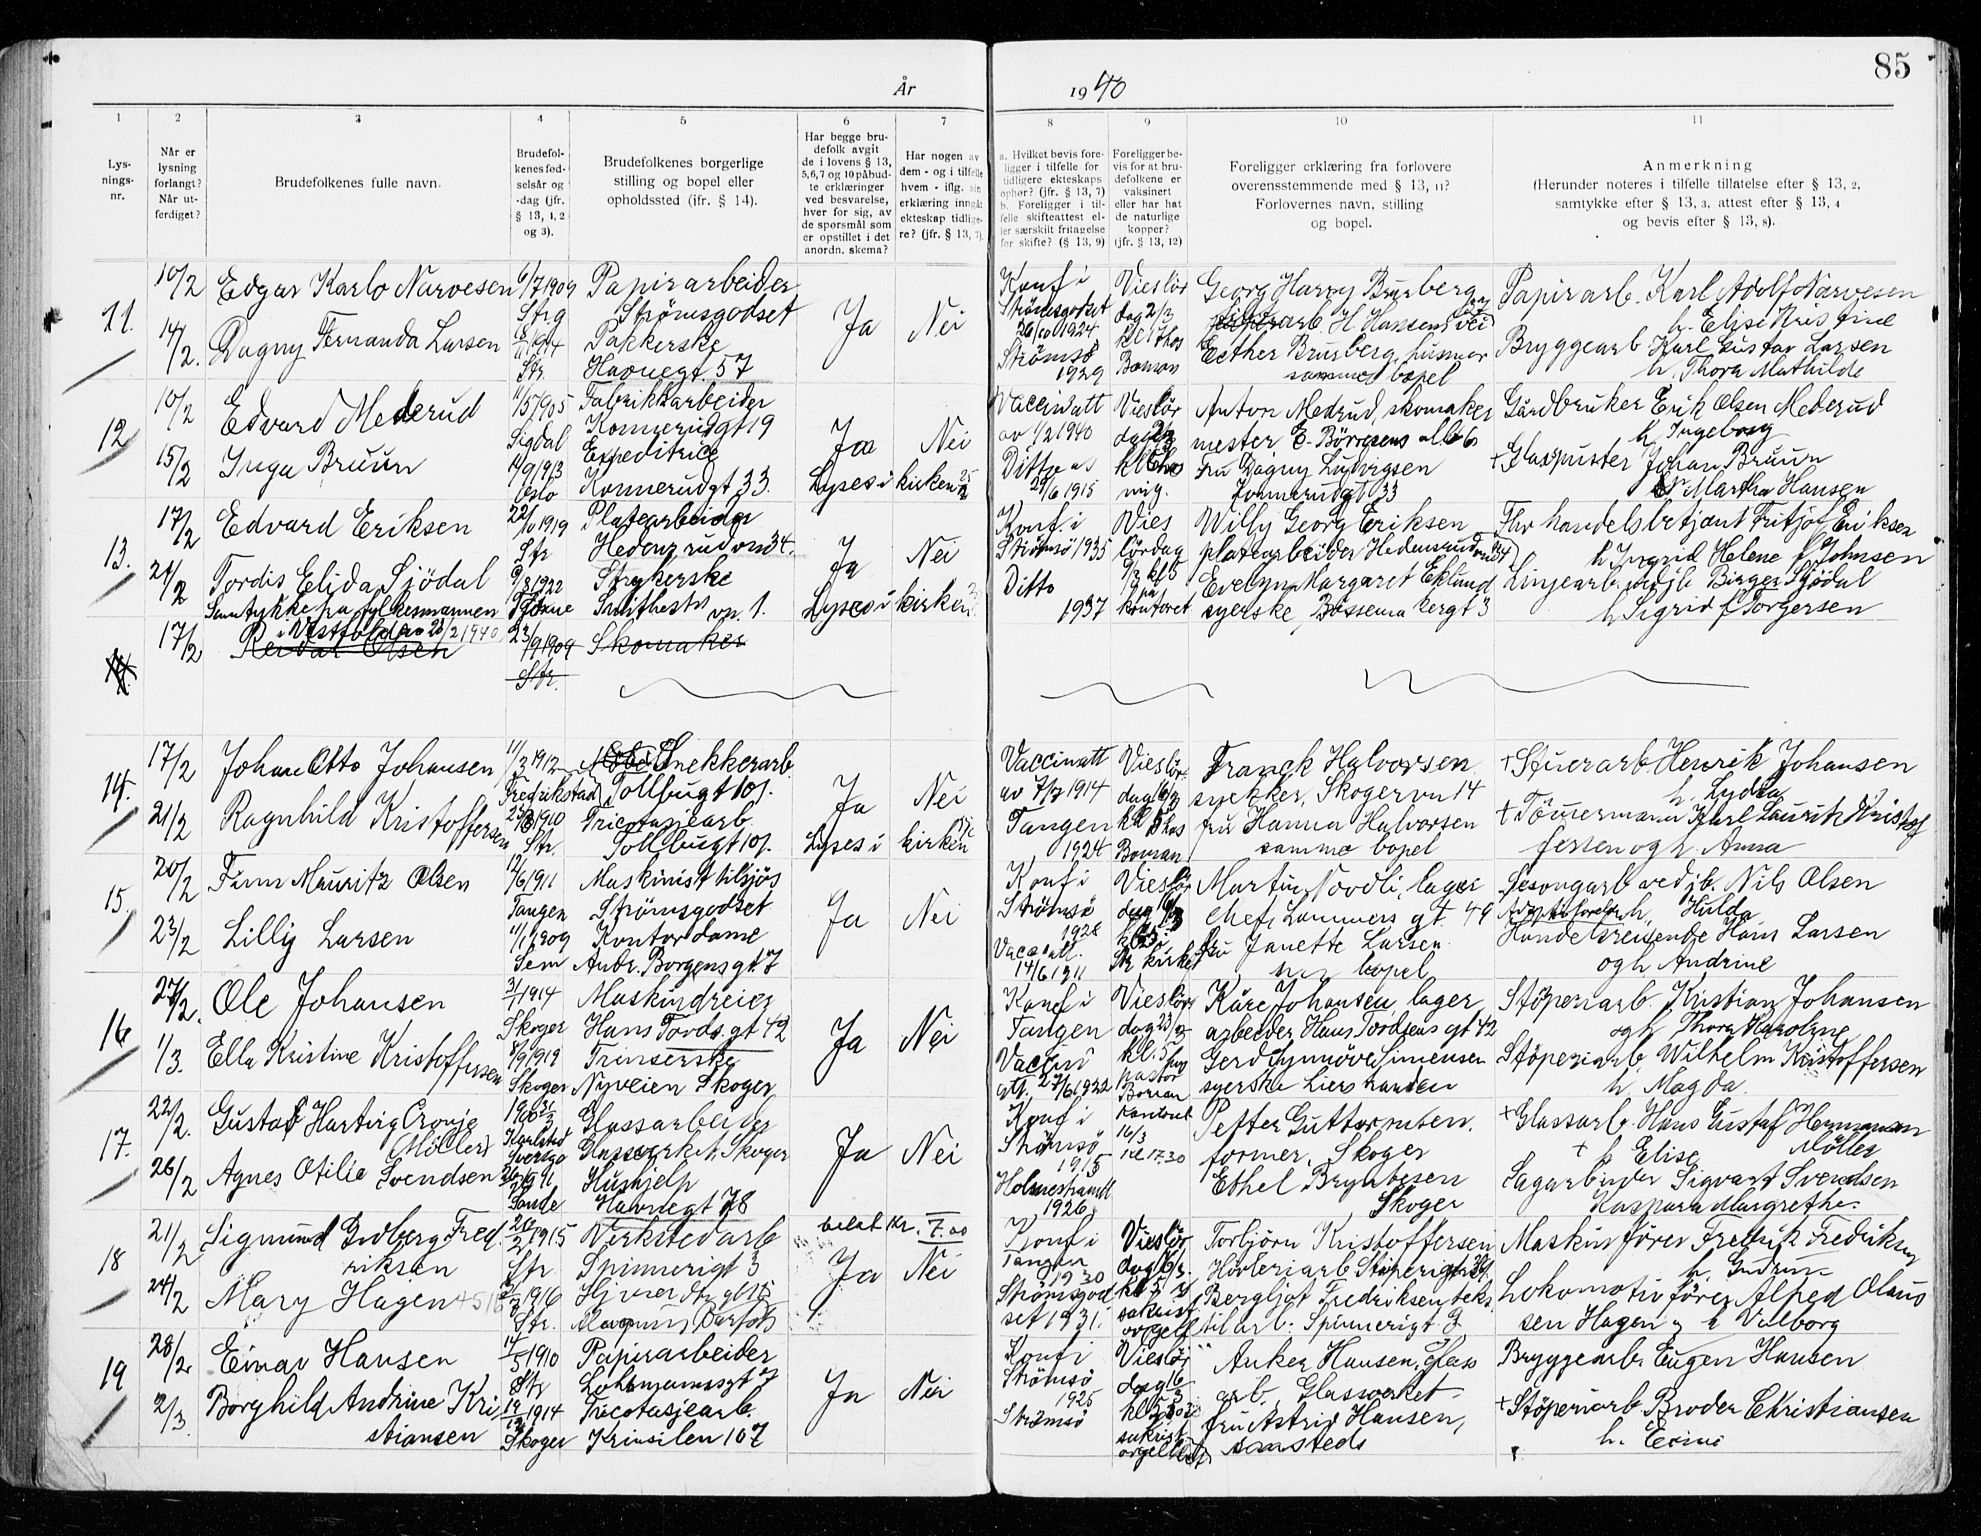 85
År 1940
1 2 3 4 5 6 7 8 9 10 11
Lys-
nings-
nr.
Når er
lysning
forlangt?
Når ut-
ferdiget?
Brudefolkenes fulle navn.
Brudefol-
kenes fød-
selsår og
-dag (jfr.
§ 13, 1, 2
og 3).
Brudefolkenes borgerlige
stilling og bopel eller
opholdssted (jfr. § 14).
Har begge bru-
defolk avgit
de i lovens § 13,
5,6,7 og 10 påbud-
te erklæringer
ved besvarelse,
hver for sig, av
de spørsmål som
er opstillet i det
anordn. skema?
Har nogen av
dem - og i tilfelle
hvem - iflg. sin
erklæring inngått
ekteskap tidlige-
re? (jfr. § 13, 7).
a. Hvilket bevis fore-
ligger i tilfelle for
tidligere ekteskaps
ophør? (jfr. § 13, 7)
b. Foreligger i til-
felle skifteattest el-
ler særskilt fritagelse
for skifte? (§ 13, 9)
Foreligger be-
vis for at bru-
defolkene er
vaksinert
eller har hat
de naturlige
kopper?
(jfr. § 13, 12)
Foreligger erklæring fra forlovere
overensstemmende med § 13, 11?
Forlovernes navn, stilling
og bopel.
Anmerkning
(Herunder noteres i tilfelle tillatelse efter § 13, 2,
samtykke efter § 13, 3, attest efter § 13, 4
og bevis efter § 13, 8).
11.
10/2
14/2.
Edgar Karlo Narvesen
Dagny Fernanda Larsen
6/7 1909
Strg
Str.
Papirarbeider
Strömsgodset
Pakkerske
Havnegt. 57
Ja
Nei
Konf i
Strömsgodset
1924
Strömsö
1929
Vieslör
dag 2/3
Boman
Georg Harry Brusberg
H Hansens vei
Esther Brusberg, husmor
samme bopel
Papirarb. Karl Adolf Narvesen
h. Elise Kristine
Bryggearb Karl Gustav Larsen
h. Thora Mathilde
12
10/2
15/2
Edvard Mederud
Inga Bruun
11/5 1905
Sigdal
1913
Oslo
Fabrikkarbeider
Konnerudgt 19
Expeditrice
Konnerudgt 33.
Ja
Nei
Lyses i kirken 25/2
Vaccinatt
av 1/2 1940
Ditto av
1915
Vieslör
Anton Medrud, skomaker
mester E. Börresens all 6
Fru Dagny Ludvigsen
Konnerudgt 33
Gårdbruker Erik Olsen Mederud
h Ingeborg
+Glaspuster Johan Bruun
Martha Hansen
13.
17/2
24/2
Edvard Eriksen
Tordis Elida Sjödal
Samtykke fra fylkesmannen
i Vestfold av 23/2 1940
1919
Str
9/8 1922
Platearbeider
Hedensrudvn 34.
Strykerske
Smithestr vn. 1.
Ja
Nei
Lyses i kirken
Konf i
Strömsö 1935
Ditto
1937
Vies
lördag
9/3 kl 5
kontoret
Willy Georg Eriksen
platearbeider Hedensrudvn 34
Evelyn Margaret Eklund
syerske, Bossemakergt 3
Fhv handelsbetjent Fritjof Eriksen
h Ingrid Helene f Johnsen
Linjearb. Birger Sjödal
h Sigrid f Torgersen
17/2
Reidar Olsen
23/9 1909
Str.
Skomaker
14.
17/2
21/2
Johan Otto Johansen
Ragnhild Kristoffersen
11/3 1912
Fredrikstad
1910
Str.
Snekkerarb.
Tollbugt 101.
Tricotagearb.
Tollbugt 101.
Ja
Nei
Lyses i kirken
Vaccinatt
av 7/7 1914
Tangen
1924
Vieslör
dag 16/3
Boman
Franck Halvorsen
snekker, Skogervn 14
fru Hanna Halvorsen
samme bopel
+Stuerarb. Henrik Johansen
h. Lydia
+ Tömmermann Karl Laurits Kristof
fersen og h. Anna
15.
20/2
23/2
Finn Mauritz Olsen
Lilly Larsen
12/6 1911
Tangen
11/1 1909
Sem
Maskinist tilsjös
Strömsgodset
Kontordame
Andr. Borgens gt. 7
Ja
Nei
Konf i
Strömsö
Vaccatt.
14/6 1911
Vieslör
Str kirke
Martin Noodli, lager
chef, Lammers gt. 49
Fru Janette Larsen
bopel
Sesongarb ved jb. Nils Olsen
h. Hulda
Handelsreisende Hans Larsen
og h Andrine
16
27/2.
1/3.
Ole Johansen
Ella Kristine Kristoffersen
1914
Skoger
8/9 1919
Skoger
Maskindreier
Hans Tordsgt 42
Trinserske
Nyveien Skoger
Ja
Nei
Konf i
Tangen
Vaccin
att. 27/6 1922
Vieslör
dag 23/3
kl. 5
pastor
Boman
Kåre Johansen, lager
arbeider Hans Tordsens gt 42
Gerd Synnöve Simensen
syerske Lierstranden
Stöperiarb. Kristian Johansen
og h Thora Karoline
Stöperiarb. Wilhelm Kristoffersen
h. Magda
17.
22/2.
26/2
Gustaf Hartvig Cronje
(Möller)
Agnes Otilie Svendsen
Karlstad
Sverige
Sande
Glassarbeider
Glassverket, Skoger
Hushjelp
Havnegt 78
Ja
Nei
Konf i
Strömsö
1915
Holmestrand
1926
kontoret
16/3
kl 17.30
Petter Guttormsen.
former, Skoger
Ethel Bryntesen
Skoger
+Glassarb. Hans Gustaf Hermansen
Möller
+ h Elise
Sagarbeider Sigvart Svendsen
Kaspara Margrethe.
18
21/2
24/2
Sigmund Godberg Fred.
riksen
Mary Hagen
1915
Str
1916
Str.
Verkstedarb
Spinnerigt 3
betalt kr. 7.00
Ja
Nei
Konf i
Tangen
1930
Strömsgod
set 1931.
Vieslör
dag 16/3.
kl 5
sakrist
orgelf
Torbjörn Kristoffersen
Hövleriarb Stöperigt
Bergljot Fredriksen teks
til arb. Spinnerigt 3
Maskinförer Fredrik Fredriksen
h. Gudrun
Lokomotivförer Alfred Olaus
sen Hagen og h Valborg
19
28/2
2/3.
Einar Hansen
Borghild Andrine Kri
stiansen
1910
Str
1914
Skoger
Papirarbeider
Lohrmannsgt
Tricotasjearb.
Krinsilen 107
Ja
Nei
Konf i
Strömsö
1925
Strömsö
Vieslör
dag 16/3
sakrist
Anker Hansen, glass
arb. Glassverket
fru Astrid Hansen,
samsteds
Bryggearb. Eugen Hansen
+Stöperiarb Broder Christiansen
h.